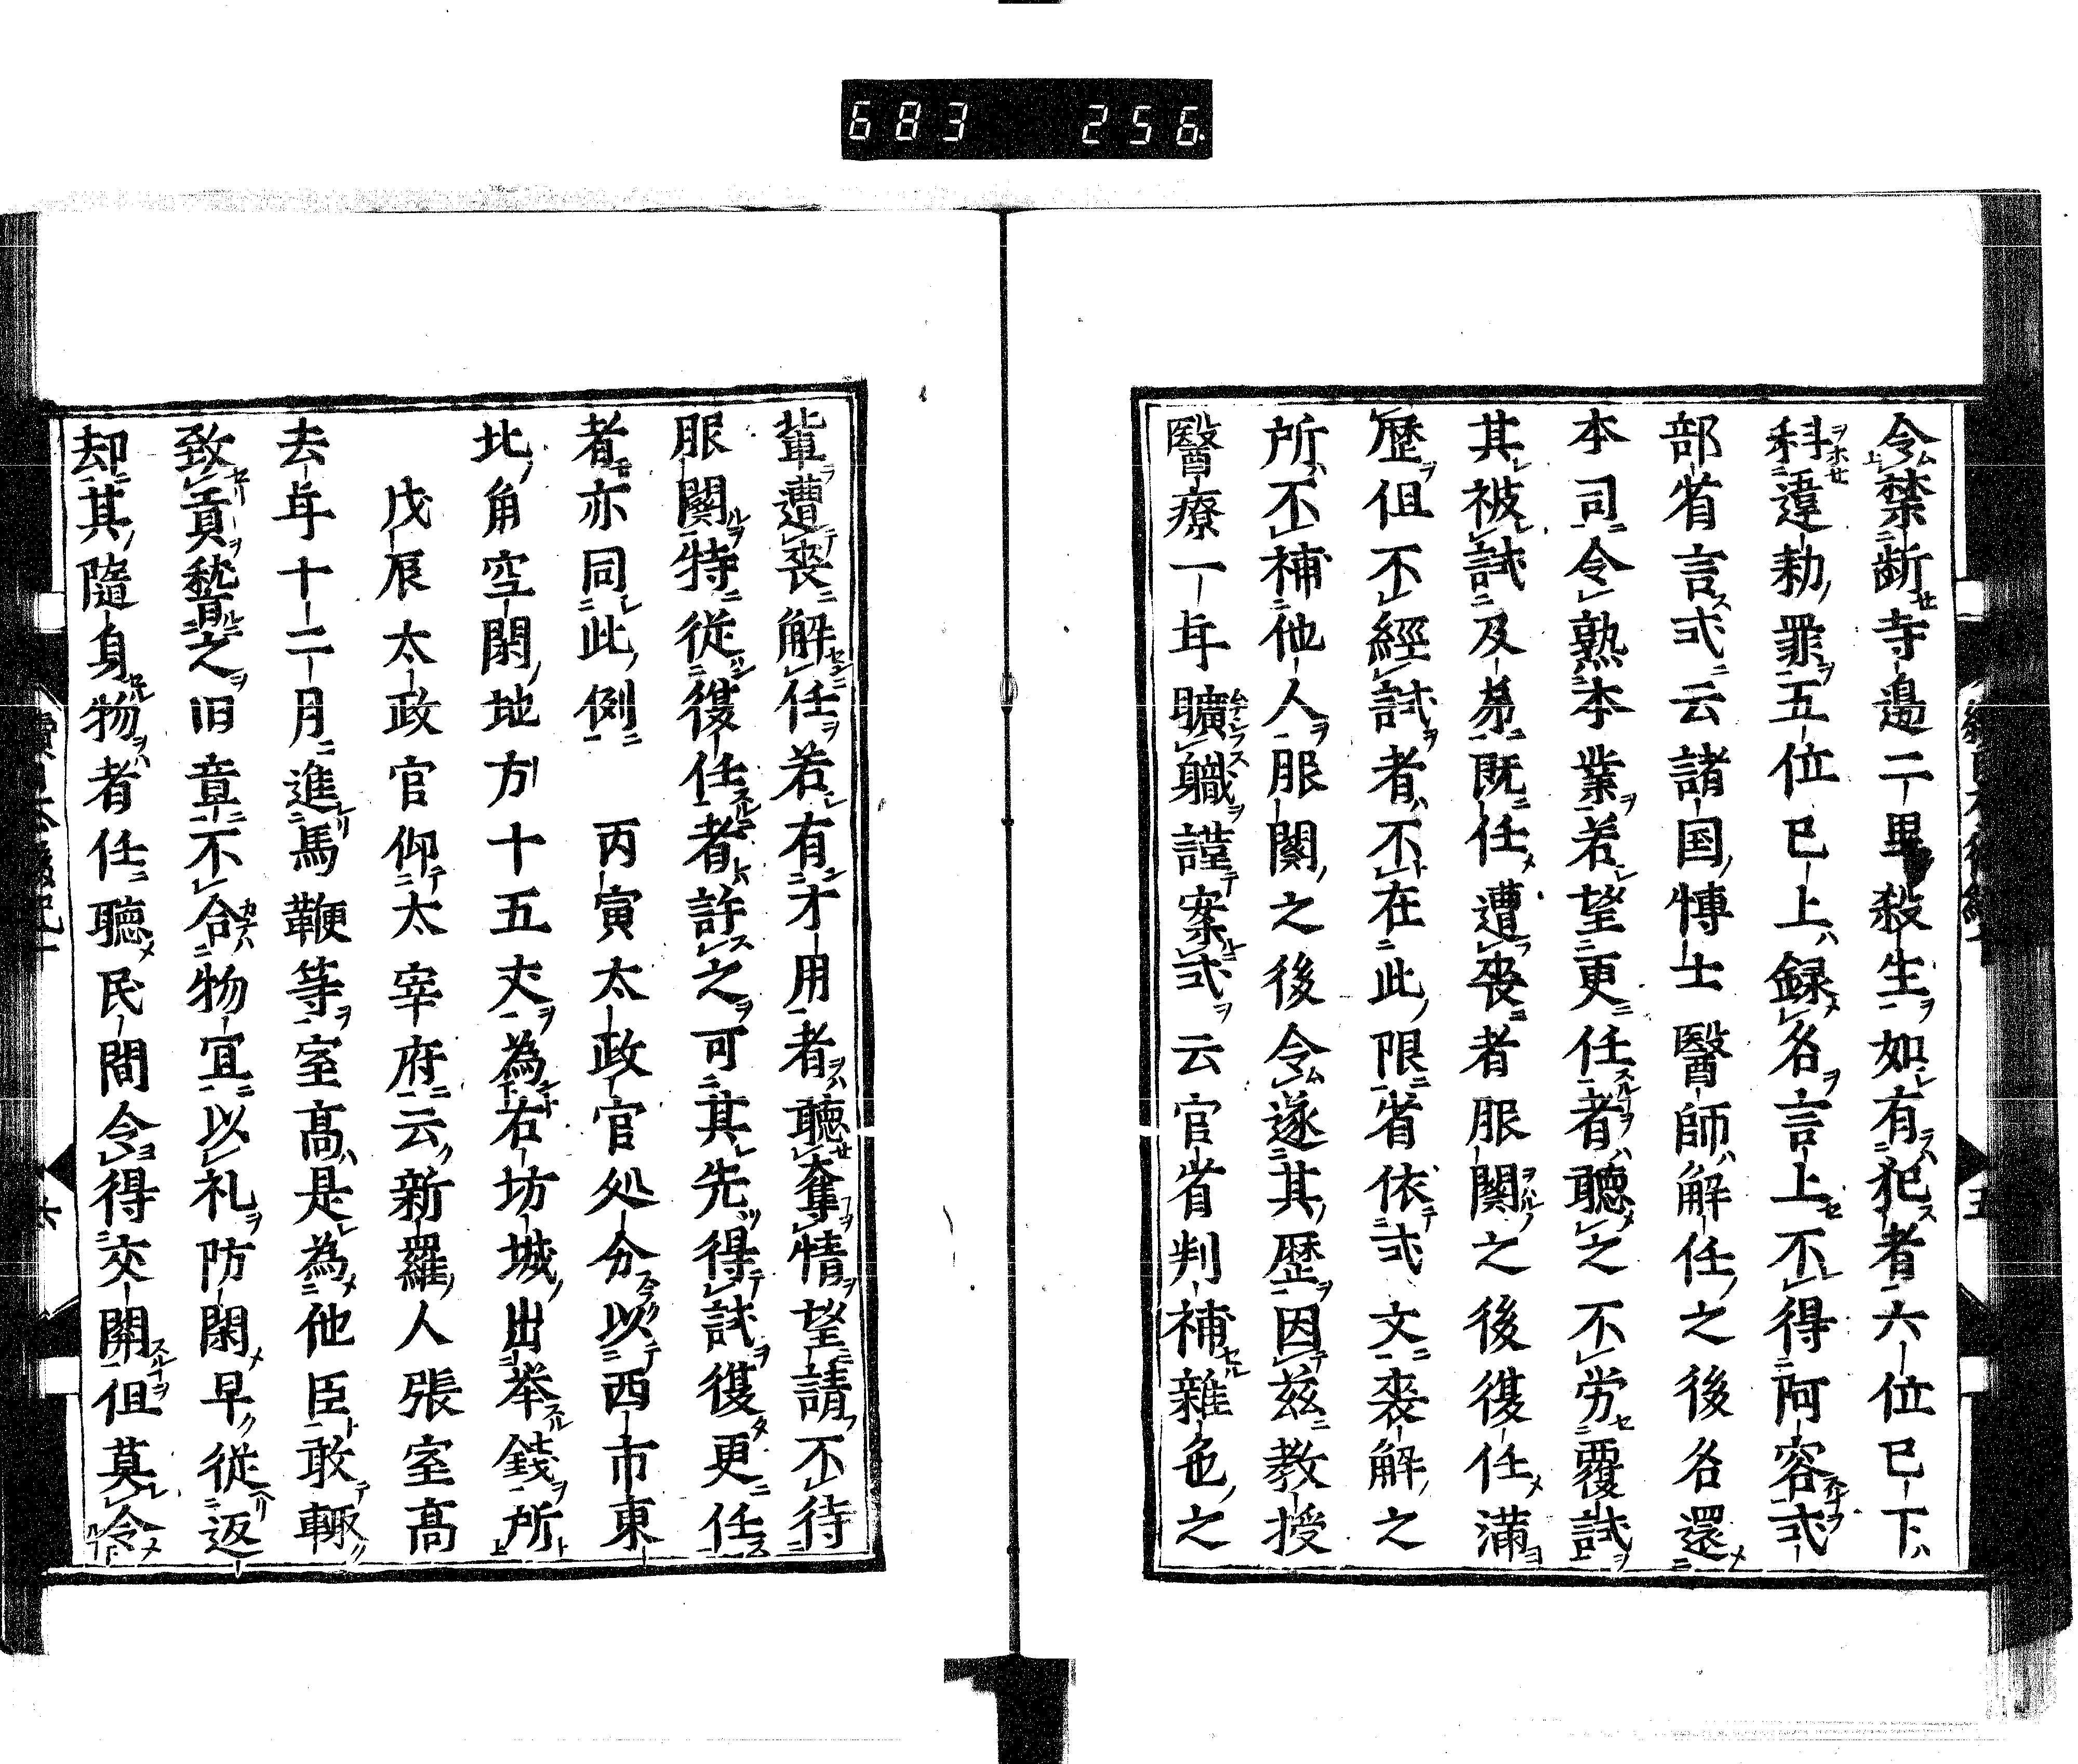 683 256
令禁断寺邉二里殺生如有犯者六位已下
科違勅罪五位已上録名言上不得阿容式
部省言式云諸国博士醫師解任之後各還
本司令熟本業若望更任者聴之不労覆試
其被試及第既任遭喪者服闋之後復任滿
歴但不經試者不在此限省依式文喪解之
所不補他人服闋之後令遂其歴因茲教授
醫療一年曠職謹案式云官省判補雜色之
輩遭喪解任若有才用者聴奪情望請不待
服闋特従復任者許之可其先得試復更任
者亦同此例 丙寅太政官処分以西市東
北角空閑地方十五丈為右坊城出举錢所
戊辰太政官仰太宰府云新羅人張室髙
去年十二月進馬鞭等室髙是為他臣敢輙
致貢嵆之旧章不合物宜以礼防閑早従返
却其隨身物者任聴民間令得交関但莫令